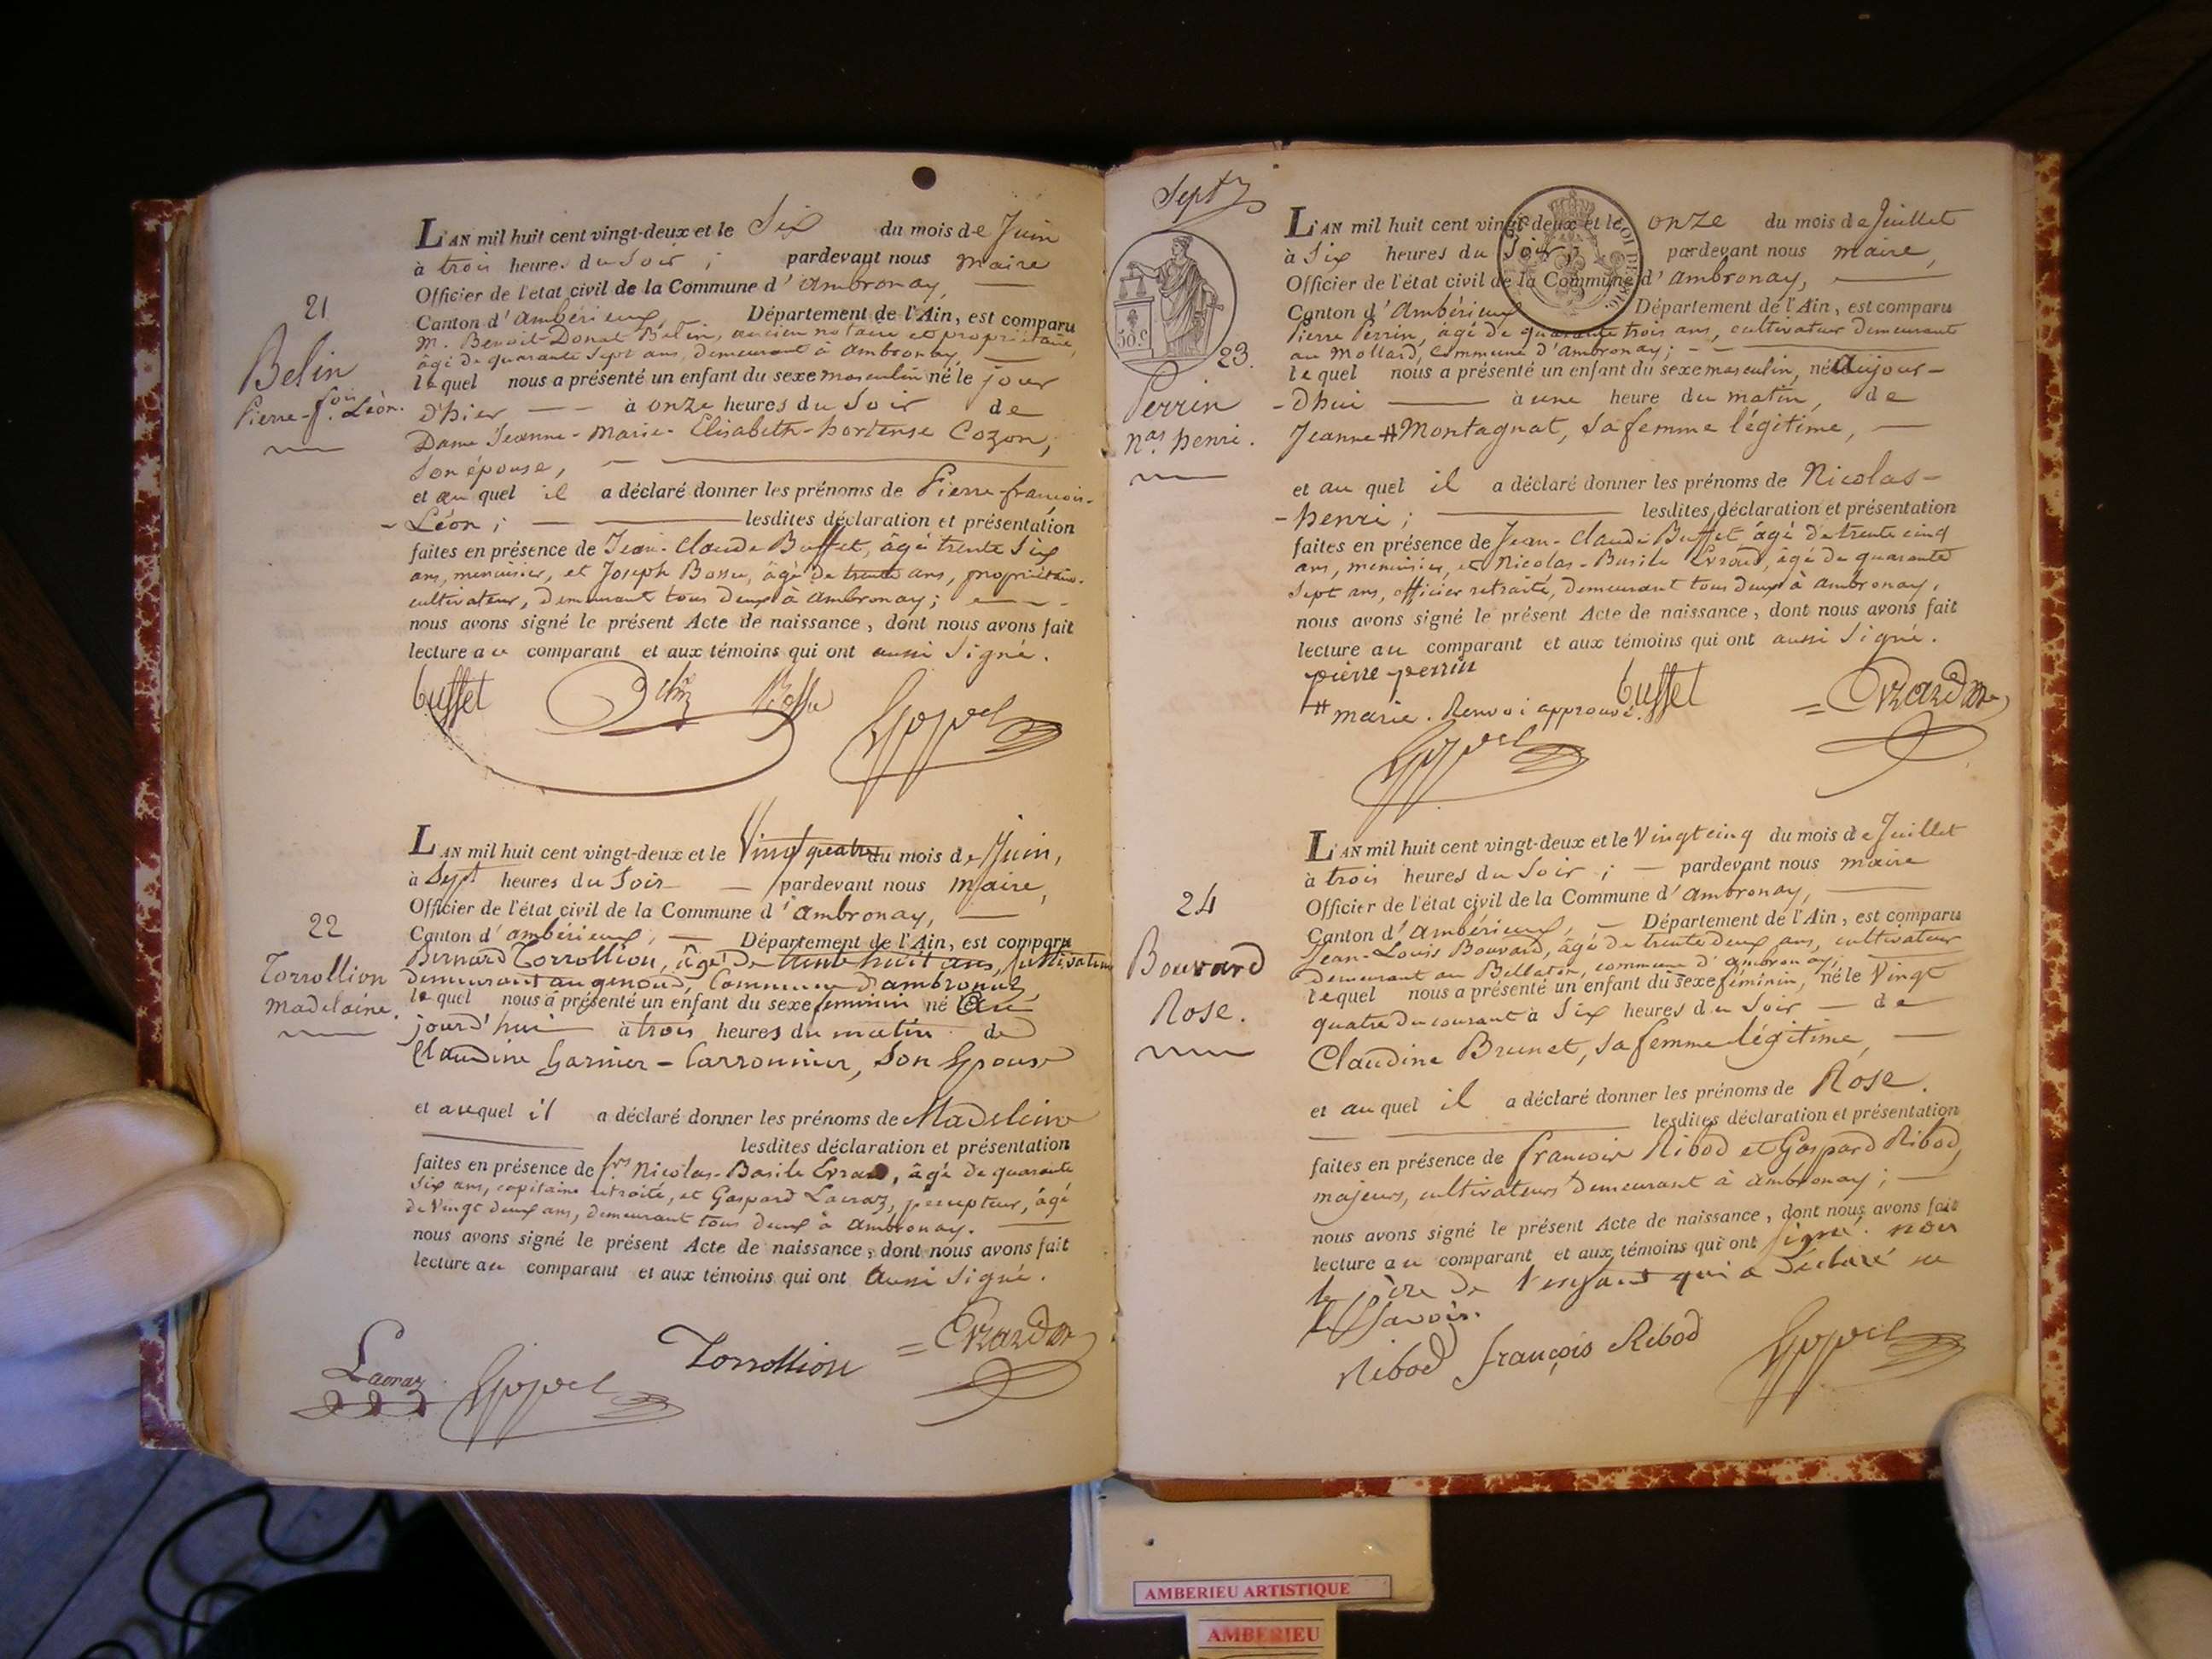 L'AN mil huit cent vingt-deux et le Six du mois de Juin
à trois heures du Soir ; pardevant nous maire
Officier de l'état civil de la Commune d'ambronay,
Canton d'ambérieux, Département de l'Ain, est comparu
M. Benoit-Donat Belin, ancien notaire et propriétaire,
âgé de quarante sept ans, demeurant à ambronay,
lequel nous a présenté un enfant du sexe masculin né le jour
d'hier à onze heures du Soir de
Dame Jeanne-Marie-Elisabeth-hortense Cozon,
Son épouse,
et au quel il a déclaré donner les prénoms de Pierre-françois-
-Léon ; lesdites déclaration et présentation
faites en présence de Jean-Claude Buffet, âgé trente Six
ans, menuisier, et Joseph Bossu, âgé de trente ans, propriétaire-
cultivateur, demeurant tous deux à ambronay ;
nous avons signé le présent Acte de naissance, dont nous avons fait
lecture au comparant et aux témoins qui ont aussi Signé.
21
Belin
Pierre-fois Léon.
buffet Belin Bossu
L'AN mil huit cent vingt-deux et le Vingt quatre du mois de Juin,
à Sept heures du Soir pardevant nous Maire,
Officier de l'état civil de la Commune d'ambronay,
Canton d'ambérieux, Département de l'Ain, est comparu
Bernard Torrollion, âgé De trente huit ans, Cultivateur
demeurant au genoud, Commune d'ambronay,
lequel nous a présenté un enfant du sexe feminin né Au
jourd'hui à trois heures du matin de
Claudine Garnier-Carronnier, Son Epouse
et auquel il a déclaré donner les prénoms de Madeleine
lesdites déclaration et présentation
faites en présence de frs Nicolas-Basile Evrard, âgé de quarante
Six ans, capitaine retraité, et Gaspard Lacraz, percepteur, âgé
de Vingt deux ans, demeurant tous deux à ambronay.
nous avons signé le présent Acte de naissance, dont nous avons fait
lecture au comparant et aux témoins qui ont aussi Signé.
22
Torrollion
Madelaine.
Lacraz Torrollion Evrard
Sept
50.c
23.
Perrin
nas henri.
L'AN mil huit cent vingt-deux et le onze du mois de Juillet
à Six heures du Soir ; pardevant nous maire,
Officier de l'état civil de la Commune d'ambronay,
Canton d'Ambérieux Département de l'Ain, est comparu
Pierre Perrin, âgé de quarante trois ans, cultivateur demeurant
au Mollard, commune d'ambronay ;
lequel nous a présenté un enfant du sexe masculin, né aujour-
-d'hui à une heure du matin, de
Jeanne # Montagnat, Sa femme légitime,
et au quel il a déclaré donner les prénoms de Nicolas-
-henri ; lesdites déclaration et présentation
faites en présence de Jean-Claude Buffet âgé de trente cinq
ans, menuisier, et Nicolas-Basile Evrard, âgé de quarante
Sept ans, officier retraité, demeurant tous deux à ambronay,
nous avons signé le présent Acte de naissance, dont nous avons fait
lecture au comparant et aux témoins qui ont aussi Signé.
pierre perrin
# marie. Renvoi approuvé. buffet Evrard
L'AN mil huit cent vingt-deux et le Vingt cinq du mois de Juillet
à trois heures du Soir ; pardevant nous maire
Officier de l'état civil de la Commune d'ambronay,
Canton d'ambérieux, Département de l'Ain, est comparu
Jean-Louis Bouvard, âgé de trente deux ans, cultivateur
demeurant au Bellaton, commune d'ambronay,
lequel nous a présenté un enfant du sexe féminin, né le Vingt
quatre du courant à Six heures du Soir de
Claudine Brunet, Sa femme légitime,
et au quel il a déclaré donner les prénoms de Rose.
lesdites déclaration et présentation
faites en présence de francois Ribod et Gaspard Ribod,
majeurs, cultivateurs demeurant à ambronay ;
nous avons signé le présent Acte de naissance, dont nous avons fait
lecture au comparant et aux témoins qui ont signé. non
le père de l'enfant qui a déclaré ne
le Savoir.
24
Bouvard
Rose.
Ribod françois Ribod
AMBERIEU ARTISTIQUE
AMBERIEU